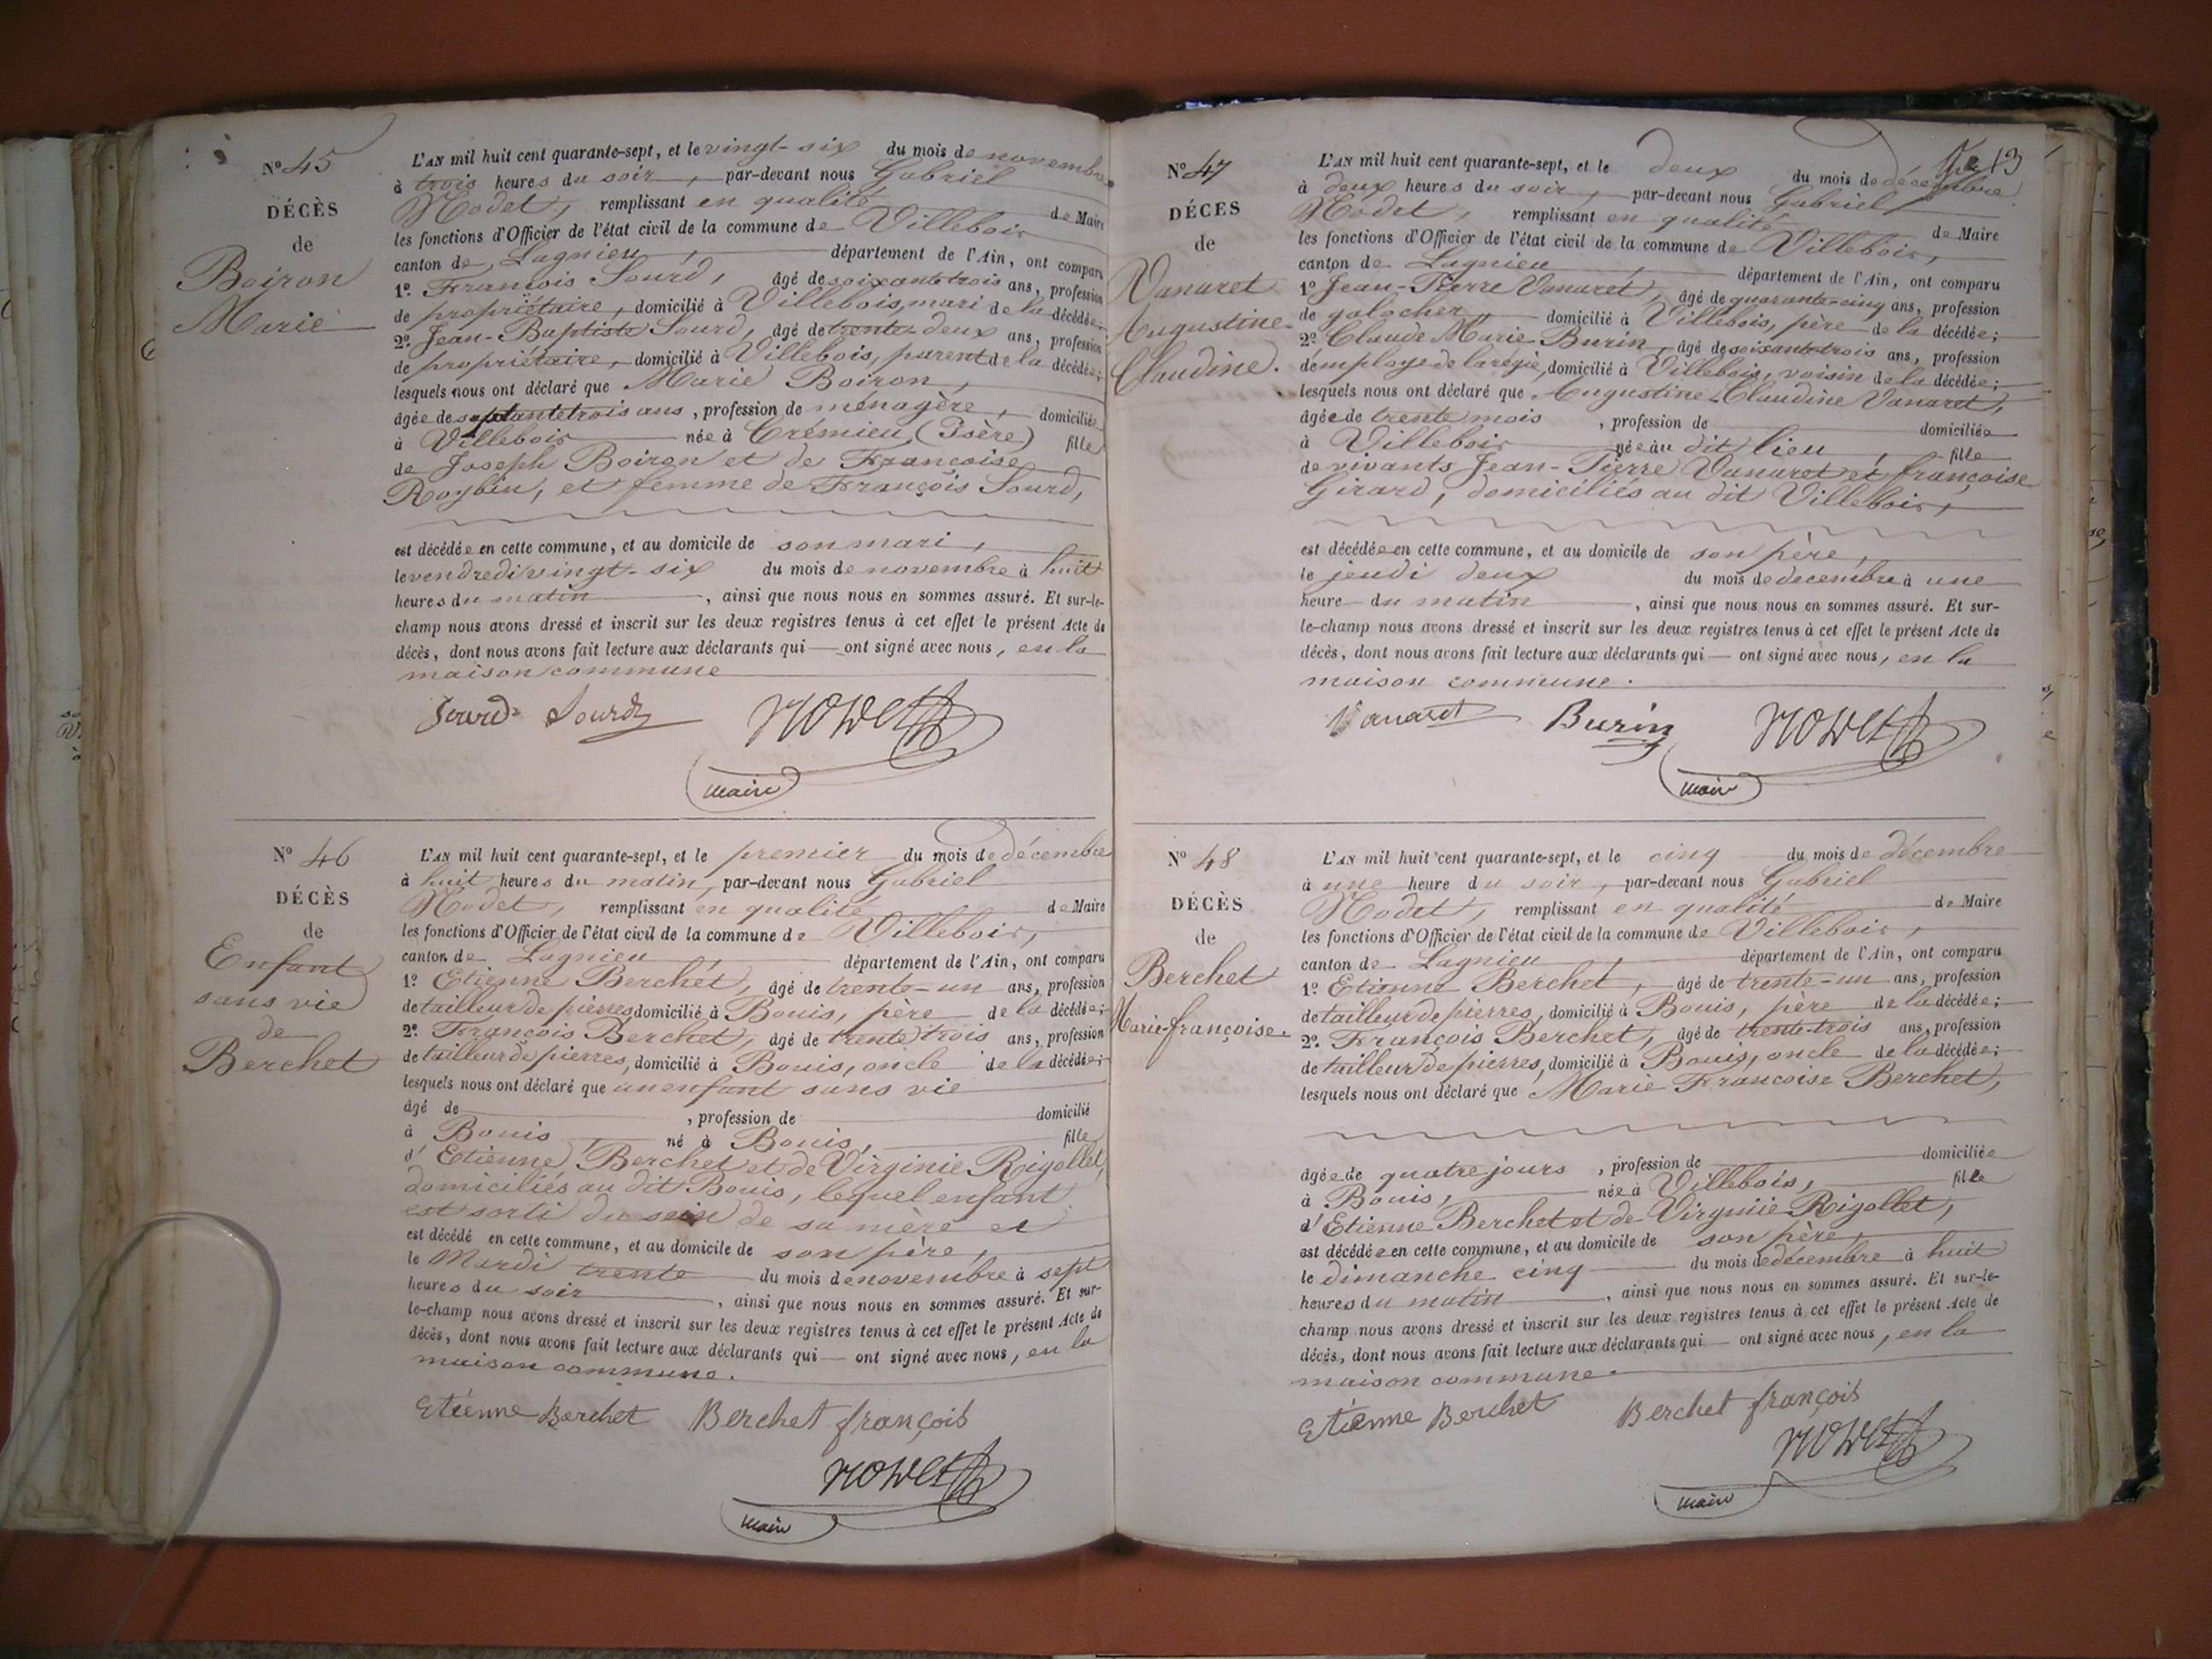 N° 45
DÉCÈS
de
Boiron
Marie
L'AN mil huit cent quarante-sept, et le vingt-six du mois de novembre
à trois heures du soir, par-devant nous Gabriel
Nodet, remplissant en qualité de Maire
les fonctions d'Officier de l'état civil de la commune de Villebois
canton de Lagnieu, département de l'Ain, ont comparu
1° François Sourd, âgé de soixante trois ans, profession
de propriétaire, domicilié à Villebois, mari de la décédée;
2° Jean-Baptiste Sourd, âgé de trente-deux ans, profession
de propriétaire, domicilié à Villebois, parent de la décédée;
lesquels nous ont déclaré que Marie Boiron,
âgée de septante trois ans, profession de ménagère, domiciliée
à Villebois née à Crémieu, (Isère) fille
de Joseph Boiron et de Françoise
Roybin, et femme de François Sourd,
est décédée en cette commune, et au domicile de son mari,
le vendredi vingt-six du mois de novembre à huit
heures du matin, ainsi que nous nous en sommes assuré. Et sur-le-
champ nous avons dressé et inscrit sur les deux registres tenus à cet effet le présent Acte de
décès, dont nous avons fait lecture aux déclarants qui — ont signé avec nous, en la
maison commune
Sourd Sourd Nodet
maire
N° 46
DÉCÈS
de
Enfant
sans vie
de
Berchet
L'AN mil huit cent quarante-sept, et le premier du mois de décembre
à huit heures du matin, par-devant nous Gabriel
Nodet, remplissant en qualité de Maire
les fonctions d'Officier de l'état civil de la commune de Villebois,
canton de Lagnieu, département de l'Ain, ont comparu
1° Etienne Berchet, âgé de trente-un ans, profession
de tailleur de pierres, domicilié à Bouis, père de la décédée;
2° François Berchet, âgé de trente trois ans, profession
de tailleur de pierres, domicilié à Bouis, oncle de la décédée;
lesquels nous ont déclaré que un enfant sans vie
âgé de , profession de domicilié
à Bouis né à Bouis, fille
d'Etienne Berchet et de Virginie Rigollet,
domiciliés au dit Bouis, lequel enfant
est sorti du sein de sa mère et
est décédé en cette commune, et au domicile de son père,
le Mardi trente du mois de novembre à sept
heures du soir, ainsi que nous nous en sommes assuré. Et sur-
le-champ nous avons dressé et inscrit sur les deux registres tenus à cet effet le présent Acte de
décès, dont nous avons fait lecture aux déclarants qui — ont signé avec nous, en la
maison commune.
Etienne Berchet Berchet françois
Nodet
maire
13
N° 47
DÉCES
de
Vanaret
Augustine-
Claudine.
L'AN mil huit cent quarante-sept, et le deux du mois de décembre
à deux heures du soir, par-devant nous Gabriel
Nodet, remplissant en qualité de Maire
les fonctions d'Officier de l'état civil de la commune de Villebois,
canton de Lagnieu, département de l'Ain, ont comparu
1° Jean-Pierre Vanaret, âgé de quarante-cinq ans, profession
de galocher, domicilié à Villebois, père de la décédée;
2° Claude Marie Burin, âgé de soixante-trois ans, profession
d'employé de la régie, domicilié à Villebois, voisin de la décédée;
lesquels nous ont déclaré que Augustine-Claudine Vanaret,
âgée de trente mois, profession de domiciliée
à Villebois née au dit lieu, fille
de vivants Jean-Pierre Vanaret et françoise
Girard, domiciliés au dit Villebois,
est décédée en cette commune, et au domicile de son père,
le jeudi deux du mois de decembre à une
heure du matin, ainsi que nous nous en sommes assuré. Et sur-
le-champ nous avons dressé et inscrit sur les deux registres tenus à cet effet le présent Acte de
décès, dont nous avons fait lecture aux déclarants qui — ont signé avec nous, en la
maison commune.
Vanaret Burin Nodet
maire
N° 48
DÉCÈS
de
Berchet
Marie françoise.
L'AN mil huit cent quarante-sept, et le cinq du mois de décembre
à une heure du soir, par-devant nous Gabriel
Nodet, remplissant en qualité de Maire
les fonctions d'Officier de l'état civil de la commune de Villebois,
canton de Lagnieu, département de l'Ain, ont comparu
1° Etienne Berchet, âgé de trente-un ans, profession
de tailleur de pierres, domicilié à Bouis, père de la décédée;
2° François Berchet, âgé de trente-trois ans, profession
de tailleur de pierres, domicilié à Bouis, oncle de la décédée;
lesquels nous ont déclaré que Marie Francoise Berchet,
âgée de quatre jours, profession de domiciliée
à Bouis, née à Villebois, fille
d'Etienne Berchet et de Virginie Rigollet,
est décédée en cette commune, et au domicile de son père,
le dimanche cinq du mois de décembre à huit
heures du matin, ainsi que nous nous en sommes assuré. Et sur-le-
champ nous avons dressé et inscrit sur les deux registres tenus à cet effet le présent Acte de
décès, dont nous avons fait lecture aux déclarants qui — ont signé avec nous, en la
maison commune.
Etienne Berchet Berchet françois
Nodet
maire